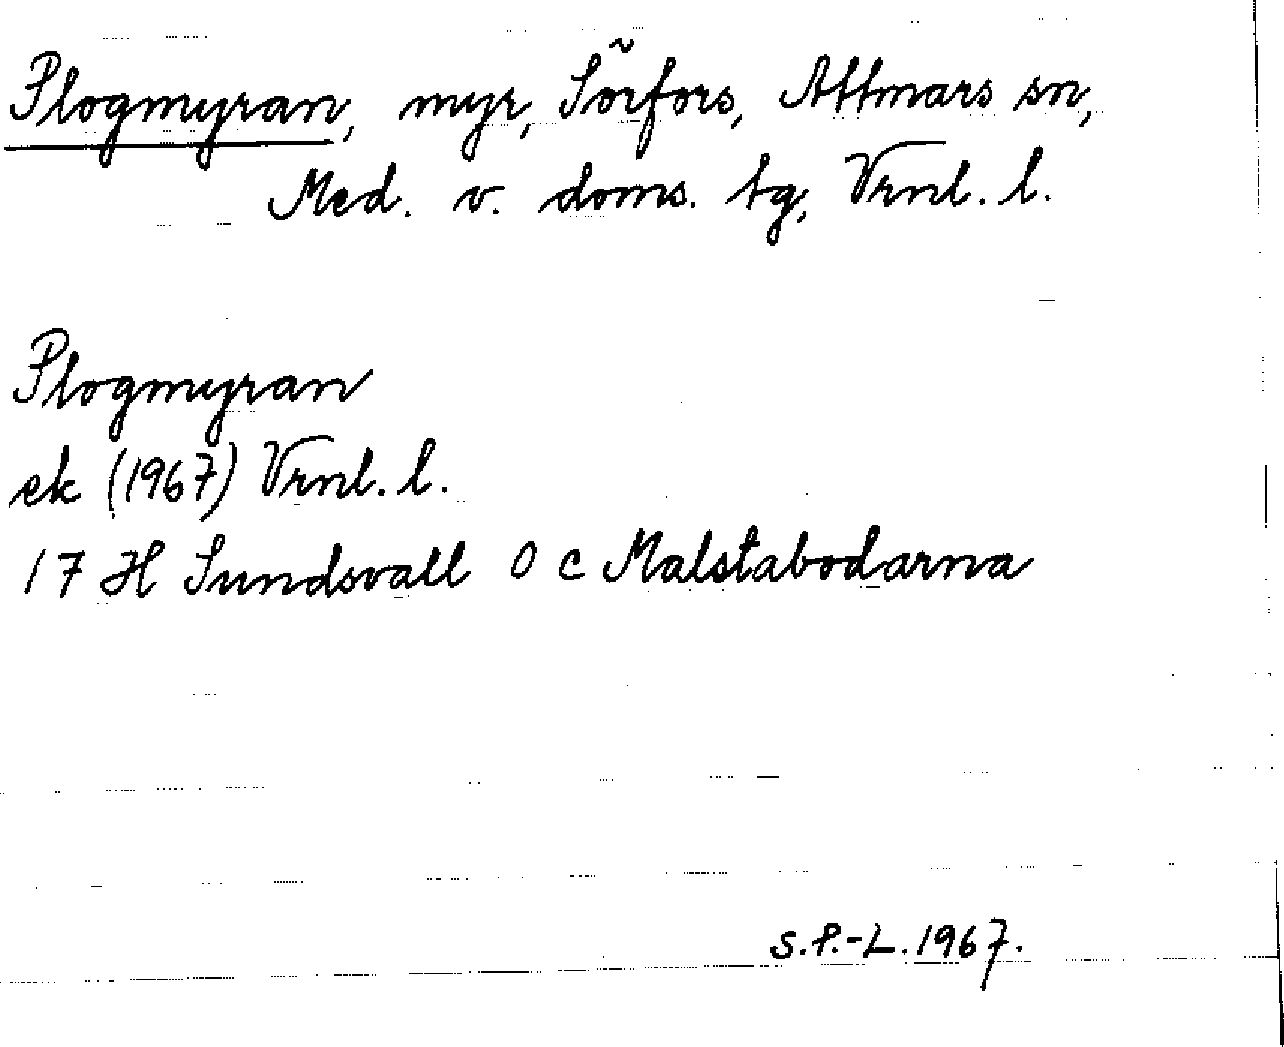 Plogmyran, myr, Sörfors, Attmars sn,
Med. v. doms. tg, Vrnl. l.
Plogmyran
ek (1967) Vrnl. l.
17 H Sundsvall 0 c Malstabodarna
S.P.-L. 1967.